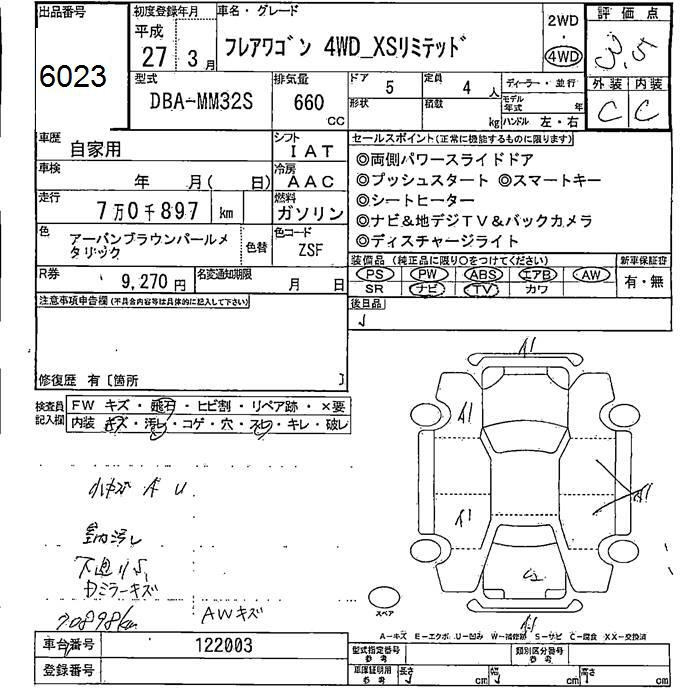 出品番号
6023
初度登録年月
平成
27年 3月
車名・グレード
フレアワゴン 4WD_XSリミテッド
2WD
・
4WD
評価点
3.5
外装 内装
C C
型式
DBA-MM32S
排気量
660
CC
ドア 5
形状
定員 4人
積載 kg
ディーラー・並行
モデル年式 年
ハンドル 左・右
車歴
自家用
シフト
IAT
車検
年 月( 日)
冷房
AAC
走行
7万0千897 km
燃料
ガソリン
色
アーバンブラウンパールメタリック
色替
色コード
ZSF
R券
9,270円
名変通知期限
月 日
セールスポイント(正常に機能するものに限ります)
◎両側パワースライドドア
◎プッシュスタート ◎スマートキー
◎シートヒーター
◎ナビ&地デジTV&バックカメラ
◎ディスチャージライト
装備品(純正品に限り○をつけてください)
新車保証書
PS PW ABS エアB AW
SR ナビ TV カワ
有・無
後日品
注意事項申告欄(不具合内容等は具体的に記入して下さい)
修復歴 有〔箇所 〕
検査員記入欄
FW キズ・飛石・ヒビ割・リペア跡・×要
内装 キズ・汚レ・コゲ・穴・スレ・キレ・破レ
小キズ A U
下廻りS
Dミラーキズ
70898km
AWキズ
A1
A1
A1
A1
A1
スペア
A-キズ E-エクボ U-凹み W-補修跡 S-サビ C-腐食 XX-交換済
車台番号
122003
登録番号
型式指定番号
参考
類別区分番号
参考
車庫証明用
参考
長さ cm
幅 cm
高さ cm